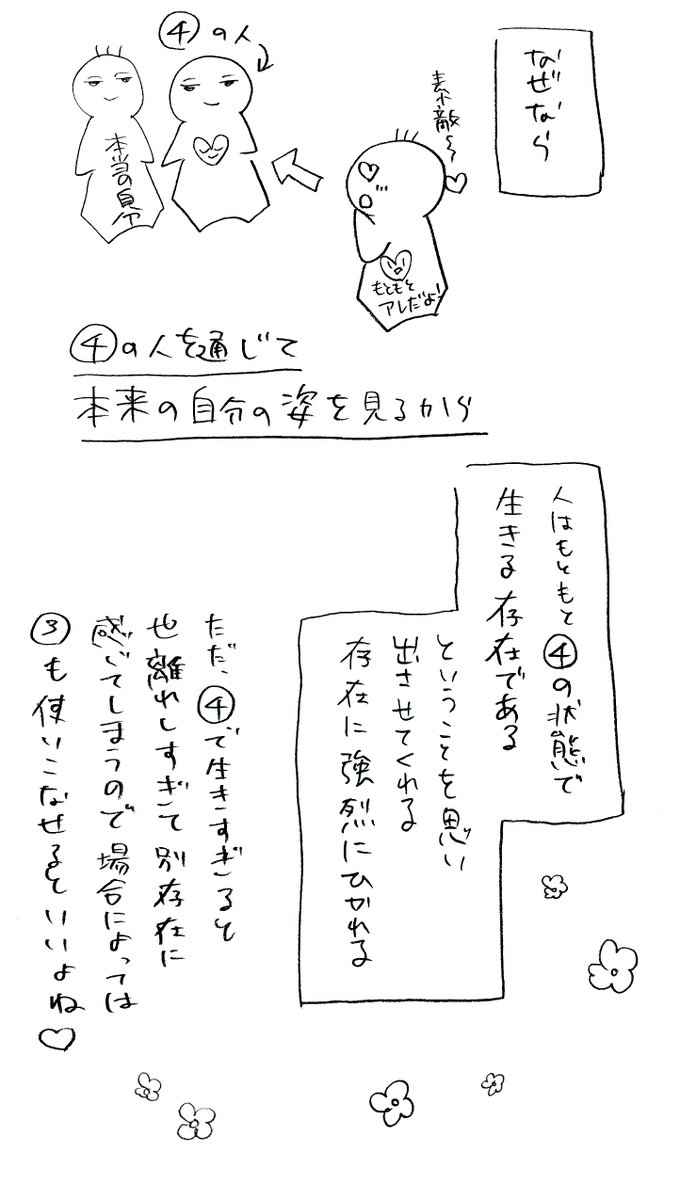 なぜなら
素敵〜
④の人
本当の自分
もともと
アレだよ!
④の人を通じて
本来の自分の姿を見るから
人はもともと④の状態で
生きる存在である
ということを思い
出させてくれる
存在に強烈にひかれる
ただ、④で生きすぎると
也離れしすぎて別存在に
感じてしまうので場合によっては
③も使いこなせるといいよね♡